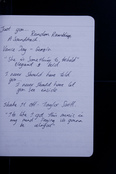 Just you
Random Ramblings
A Soundtrack
"She is Something to behold
Elegant & bold
I never should have told
you
I never should have let
you see inside
Shake it off - Taylor Swift
"It's like I got this music in
my mind saying it's gonna
be alright"